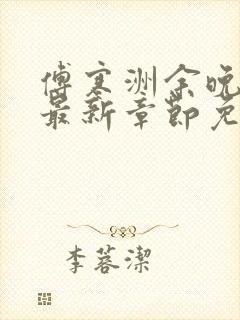 傅寒洲余晚
最新章节免
李蓉潔